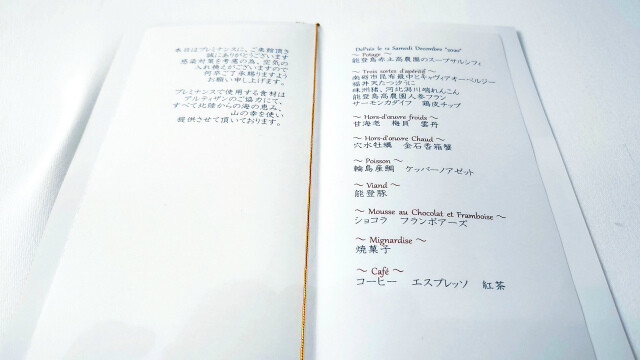 本日はプレミナンスに、ご来館頂き
誠にありがとうございます
感染対策を考慮の為、空気の
入れ換えがございますので
何卒ご了承賜りますよう
お願い申し上げます。
プレミナンスで使用する食材は
アルティザンのご協力にて、
すべて北陸からの海の恵み、
山の幸を使い
提供させて頂いております。
DePuis le 12 Samedi Decembre "2020"
～ Potage ～
能登島赤土高農園のスープサルシフィ
～ Trois sortes d'aperitif ～
福井天たつ汐うに
珠洲猪、河北潟川端れんこん
能登島高農園人参フラン
サーモンカダイフ 鶏皮チップ
～ Hors-d'œuvre froids ～
甘海老 梅貝 雲丹
～ Hors-d'œuvre Chaud ～
穴水牡蠣 金石香箱蟹
～ Poisson ～
輪島産鯛 ケッパーノアゼット
～ Viand ～
能登豚
～ Mousse au Chocolat et Framboise ～
ショコラ フランボアーズ
～ Mignardise ～
焼菓子
～ Café ～
コーヒー エスプレッソ 紅茶